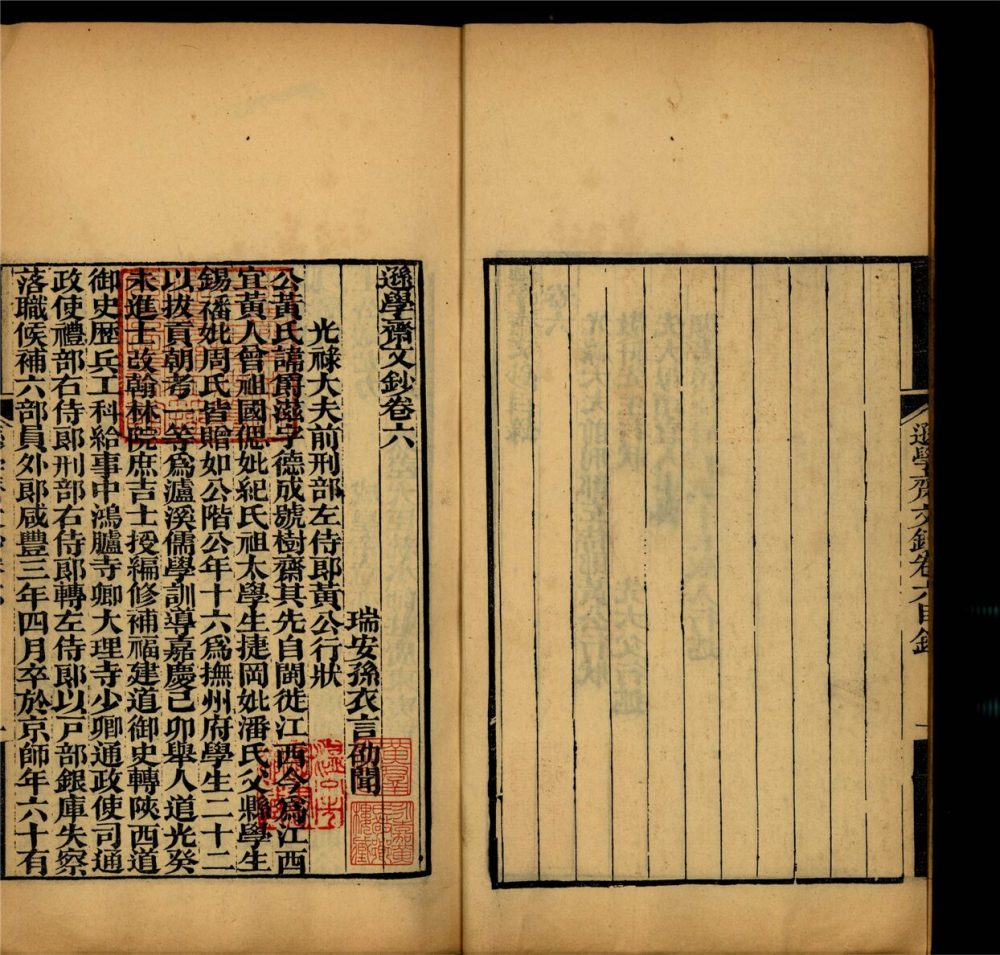 遜學齋文鈔卷六目錄
遜學齋文鈔卷六
瑞安孫衣言劭聞
光祿大夫前刑部左侍郎黃公行狀
公黃氏諱爵滋字德成號樹齋其先自閩徙江西今爲江西
宜黃人曾祖國偲妣紀氏祖太學生捷岡妣潘氏父縣學生
錫璠妣周氏皆贈如公階公年十六爲撫州府學生二十二
以拔貢朝考一等爲瀘溪儒學訓導嘉慶己卯舉人道光癸
未進士改翰林院庶吉士授編修補福建道御史轉陝西道
御史歴兵工科給事中鴻臚寺卿大理寺少卿通政使司通
政使禮部右侍郎刑部右侍郎轉左侍郎以戸部銀庫失察
落職候補六部員外郎咸豐三年四月卒於京師年六十有